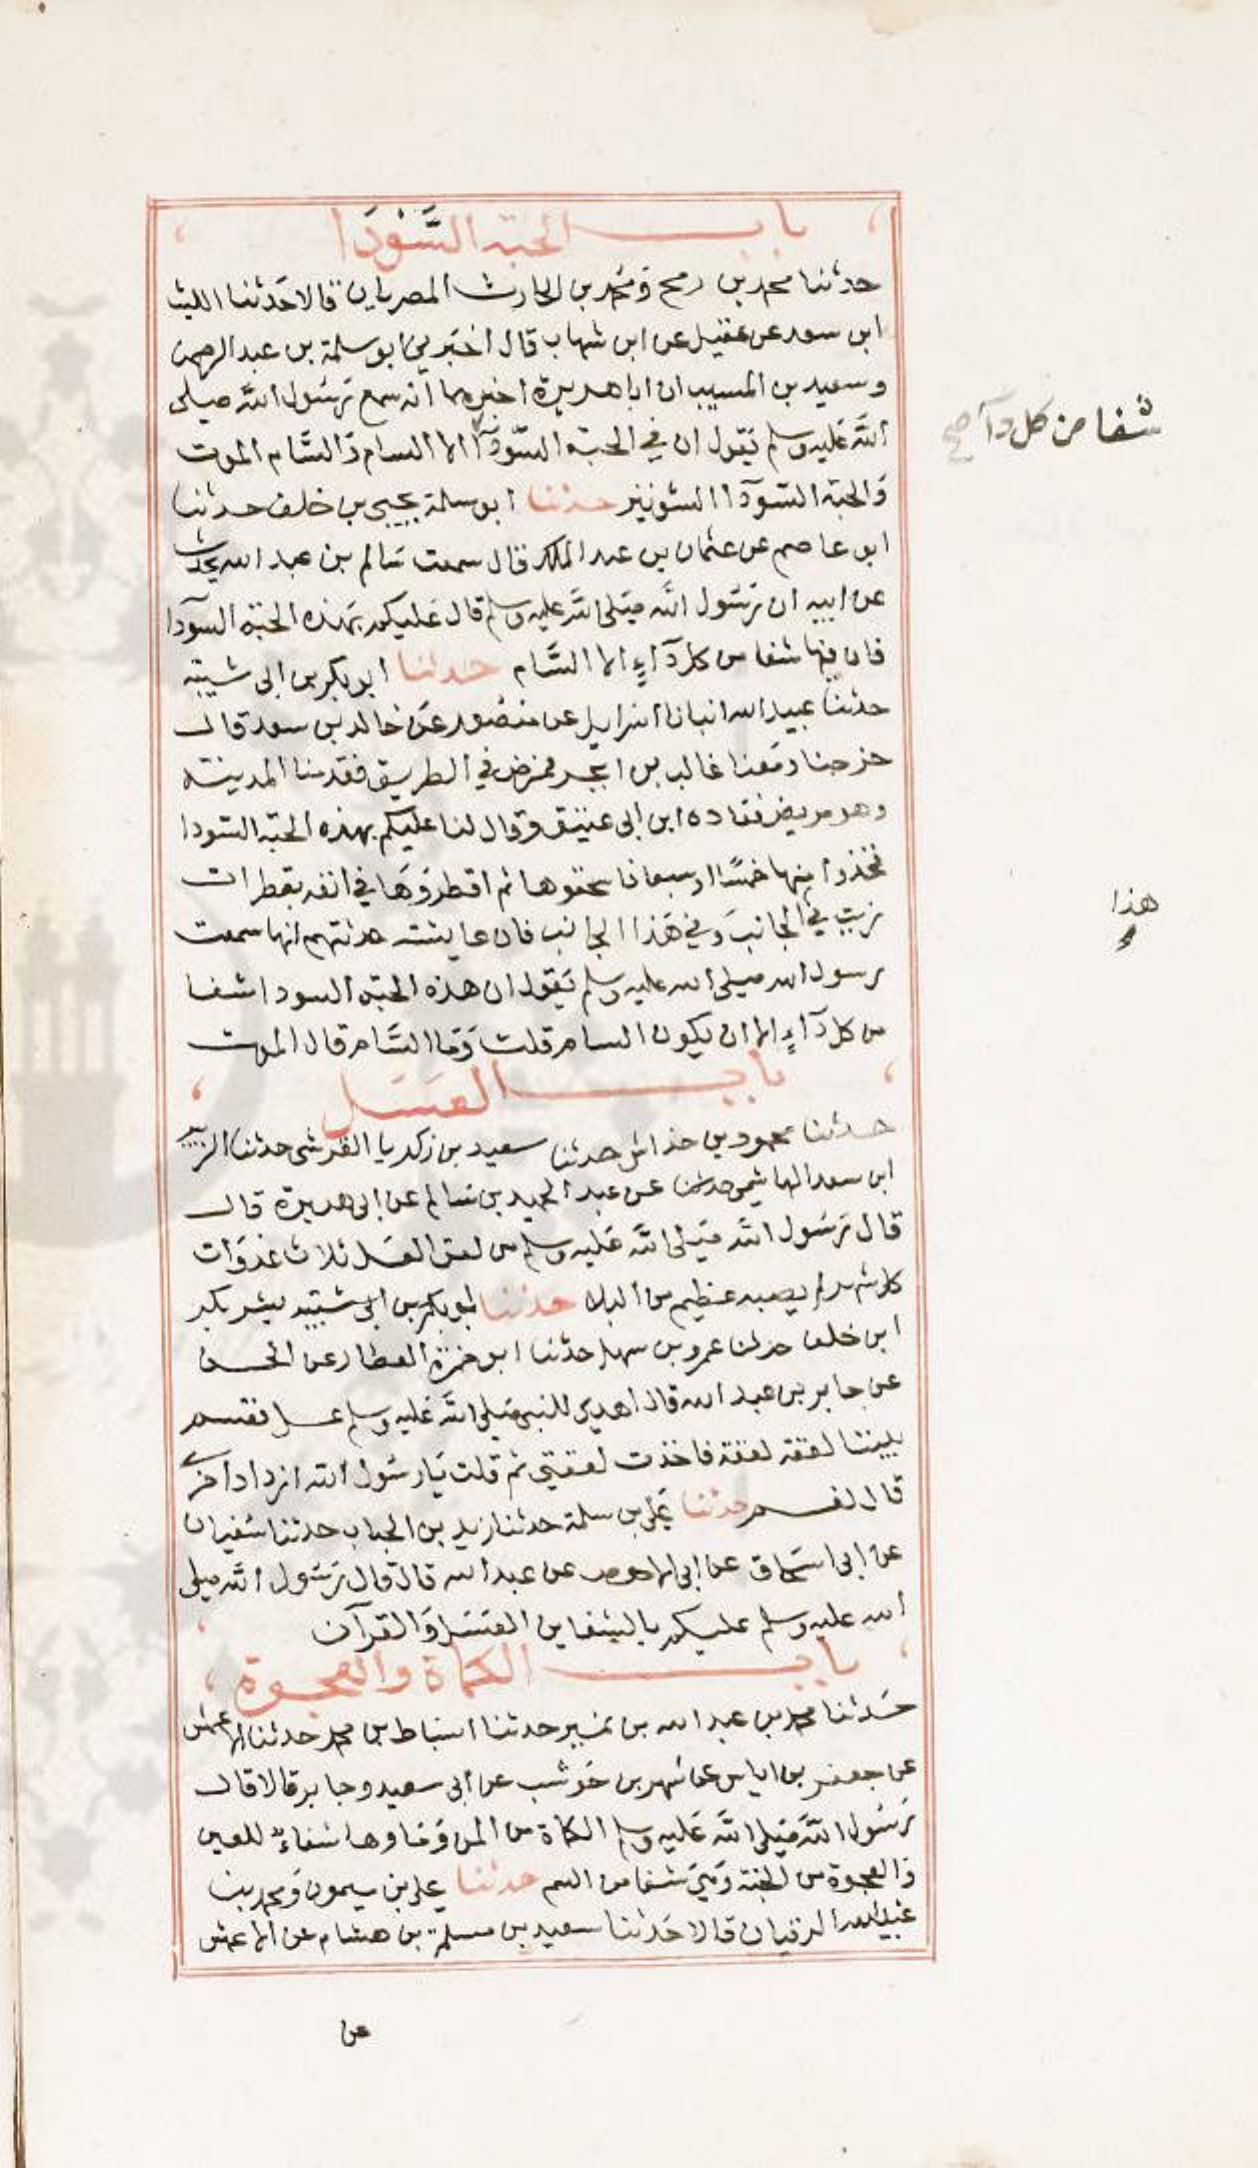 باب الحبة السَّوْدَا
حدثنا محمد بن رمح ومحمد بن الحارث المصريان قالا حَدثنا الليث
ابن سعد عن عقيل عن ابن شهاب قال اخبرني ابو سلمة بن عبد الرحمن
وسعيد بن المسيب ان ابا هريرة اخبرهما انه سمع رَسُول الله صلى
الله عَليه وسلم يَقول ان في الحبة السَّودَآ الا السام وَالسَّام الموت
شفا من كل دآ صح
وَالحبة السَّودآ الشونيز حدثنا ابو سلمة يحيى بن خلف حدثنا
ابو عاصم عن عثمان بن عبد الملك قال سمعت سَالم بن عبد الله يحدث
عن ابيه ان رَسُول الله صَلى الله عليه وسلم قال عَليكم بهَذه الحبة السودَآ
فان فيها شفا من كل دَآءٍ الا السَّام حدثنا ابو بكر بن ابي شيبة
حدثنا عبيد الله انبانا اسرايل عن منصُور عَن خالد بن سعد قال
خرجنا ومَعنا غالب بن ابجر فمرض في الطريق فقدمنا المدينة
وهو مريض فعاده ابن ابي عتيق وقال لنا عليكم بهذه الحبة السَّودا
فخذوا منها خمسًا او سبعا فاسحقوها ثم اقطروَهَا في انفه بقطرات
زيت في الجانبَ وَفي هَذا الجانب فان عايشة حدثتهم انها سمعت
هذا
رسول الله صلى الله عليه وسلم يَقول ان هذه الحبة السودا شفا
من كل دَآءٍ الا ان يكون السام قلت وَمَا السَّام قال الموت
باب العَسَل
حدثنا محمود بن خداش حدثنا سعيد بن زكريا القرشي حدثنا الزبير
ابن سعد الهاشمي حدثنا عن عبد الحميد بن سَالم عن ابي هريرة قال
قال رَسُول الله صَلى الله عَليه وسلم من لعق العسل ثلاث غدوَات
كل شهر لم يصبه عظيم من البلا حدثنا ابو بكر بن ابي شيبة بشر بكر
ابن خلف حدثنا عمرو بن سهل حدثنا ابو حمزة العطار عن الحسن
عن جابر بن عبد الله قال اهدي للنبي صَلى الله عَليه وسلم عسل فقسم
بيننا لعقة لعقة فاخذت لعقتي ثم قلت يَا رسُول الله ازداد اخرى
قال نعم حدثنا عَلي بن سلمة حدثنا زيد بن الحباب حدثنا سُفيان
عن ابي اسحَاق عن ابي الاحوص عن عبد الله قال قال رَسُول الله صلى
الله عليه وسلم عليكم بالشفاين العَسَل وَالقرآن
باب الكماة والعجوة
حَدثنا محمد بن عبد الله بن نمير حدثنا اسباط بن محمد حدثنا الاعمش
عن جعفر بن اياس عن شهر بن حَوشب عن ابي سعيد وجابر قالا قال
رَسُول الله صَلى الله عَليه وسلم الكماة من المن وَمَاوها شفاءٌ للعين
وَالعجوة من الجنة وَهيَ شفا من السم حدثنا علي بن ميمون وَمحمد بن
عبيد الله الرقيان قالا حَدثنا سعيد بن مسلمة بن هشام عن الاعمش
عن